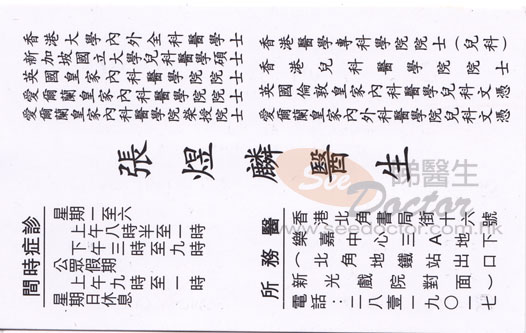 香港大學內外全科醫學士
新加坡國立大學兒科醫學碩士
英國皇家內科醫學院院士
愛爾蘭皇家內科醫學院院士
愛爾蘭皇家內科醫學院榮授院士
香港醫學專科學院院士(兒科)
香港兒科醫學院院士
英國倫敦皇家內科醫學院兒科文憑
愛爾蘭皇家內外科醫學院兒科文憑
張煜麟醫生
See 睇醫生
Doctor
www.seedoctor.com.hk
診症時間
星期一至六
上午八時半至一時
下午三時至九時
公眾假期
上午九時至一時
星期日休息
醫務所
香港北角書局街十六號
樂嘉中心三A地下
(北角地鐵站出口
新光戲院對面)
電話：二八壹一九〇一七